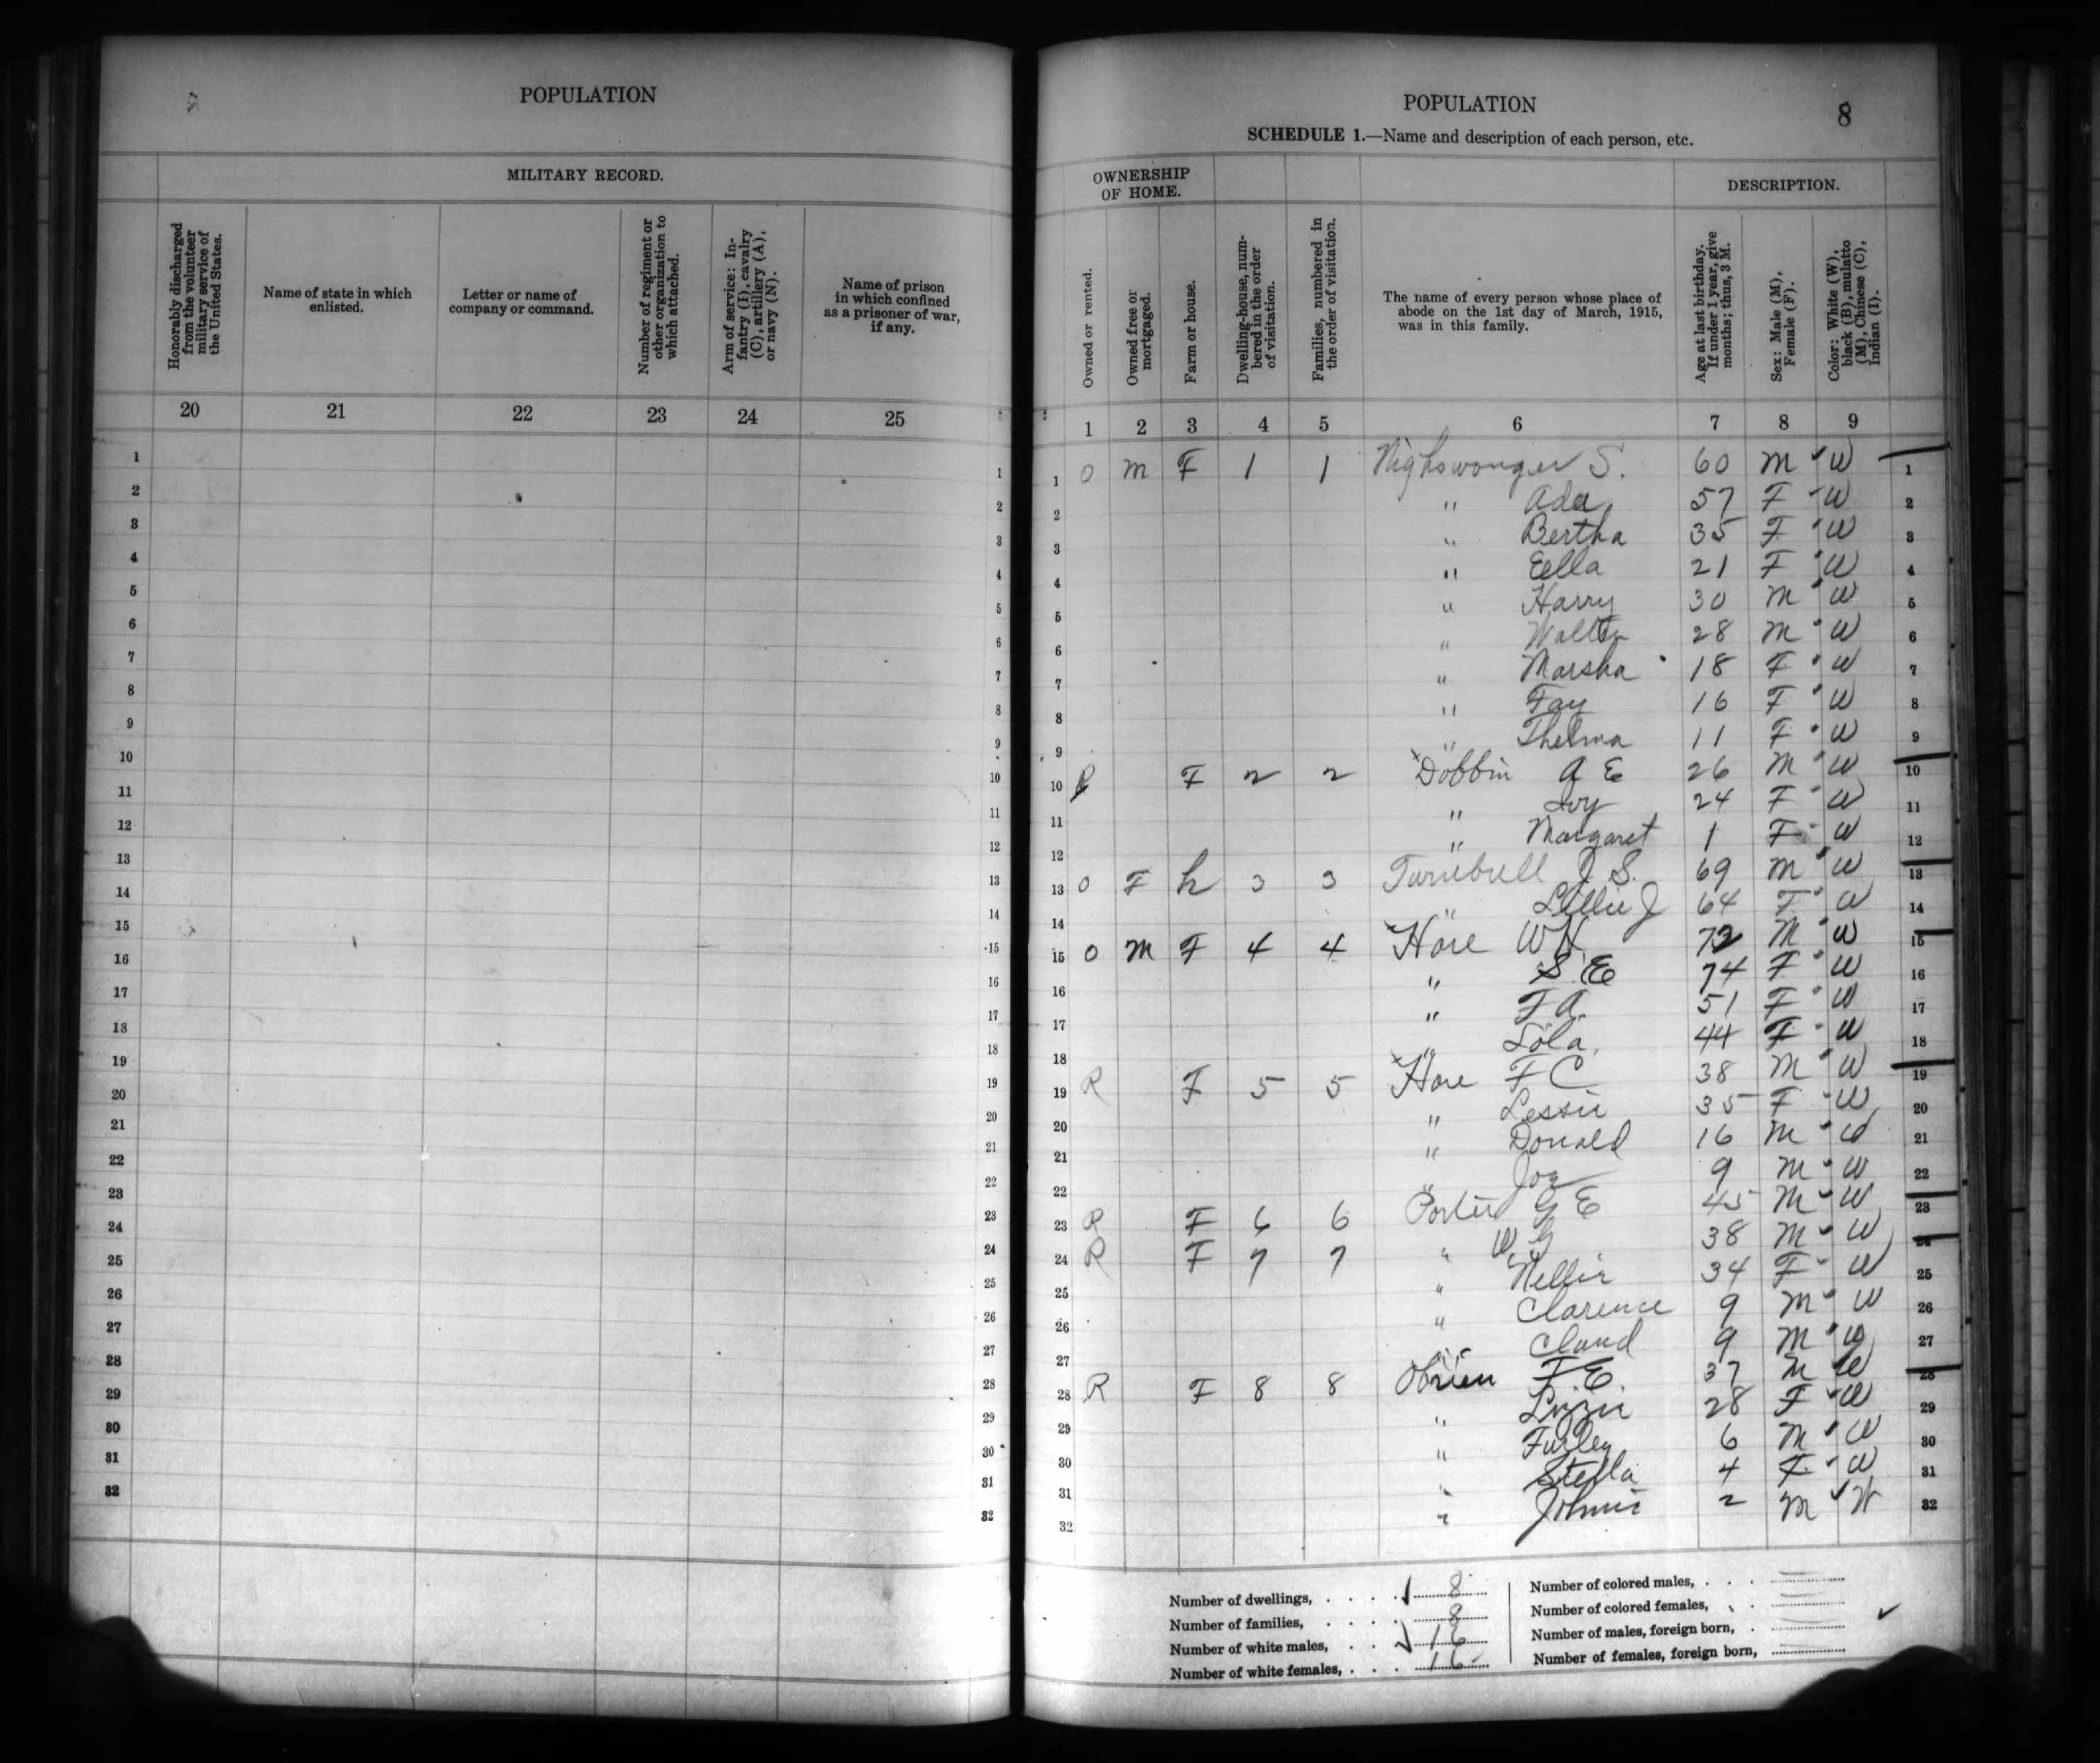 POPULATION
MILITARY RECORD.
Honorably discharged from the volunteer military service of the United States.
Name of state in which enlisted.
Letter or name of company or command.
Number of regiment or other organization to which attached.
Arm of service: Infantry (I), cavalry (C), artillery (A), or navy (N).
Name of prison in which confined as a prisoner of war, if any.
20 21 22 23 24 25
1 1
2 2
3 3
4 4
5 5
6 6
7 7
8 8
9 9
10 10
11 11
12 12
13 13
14 14
15 15
16 16
17 17
18 18
19 19
20 20
21 21
22 22
23 23
24 24
25 25
26 26
27 27
28 28
29 29
30 30
31 31
32 32
POPULATION
8
SCHEDULE 1.—Name and description of each person, etc.
OWNERSHIP OF HOME.
DESCRIPTION.
Owned or rented.
Owned free or mortgaged.
Farm or house.
Dwelling-house, numbered in the order of visitation.
Families, numbered in the order of visitation.
The name of every person whose place of abode on the 1st day of March, 1915, was in this family.
Age at last birthday. If under 1 year, give months; thus, 3 M.
Sex: Male (M), Female (F).
Color: White (W), black (B), mulatto (M), Chinese (C), Indian (I).
1 2 3 4 5 6 7 8 9
1 O M F 1 1 Nighswonger S. 60 M W 1
2 " Ada 57 F W 2
3 " Bertha 35 F W 3
4 " Eella 21 F W 4
5 " Harry 30 M W 5
6 " Walter 28 M W 6
7 " Marsha 18 F W 7
8 " Fay 16 F W 8
9 " Thelma 11 F W 9
10 R F 2 2 Dobbin A E 26 M W 10
11 " Ivy 24 F W 11
12 " Margaret 1 F W 12
13 O F h 3 3 Turnbull J S. 69 M W 13
14 " Lillie J 64 F W 14
15 O M F 4 4 Hore W H 72 M W 15
16 " S. E 74 F W 16
17 " F A. 51 F W 17
18 " Lola 44 F W 18
19 R F 5 5 Hore F C 38 M W 19
20 " Lessie 35 F W 20
21 " Donald 16 M W 21
22 " Joe 9 M W 22
23 R F 6 6 Porter G E 45 M W 23
24 R F 7 7 " W G 38 M W 24
25 " Nellie 34 F W 25
26 " Clarence 9 M W 26
27 " Claud 9 M W 27
28 R F 8 8 Obrien F. E. 37 M W 28
29 " Lizzie 28 F W 29
30 " Furley 6 M W 30
31 " Stella 4 F W 31
32 " Johnie 2 M W 32
Number of dwellings, . . . . 8
Number of families, . . . . 8
Number of white males, . . . 16
Number of white females, . . . 16
Number of colored males, . . .
Number of colored females, . .
Number of males, foreign born, .
Number of females, foreign born,